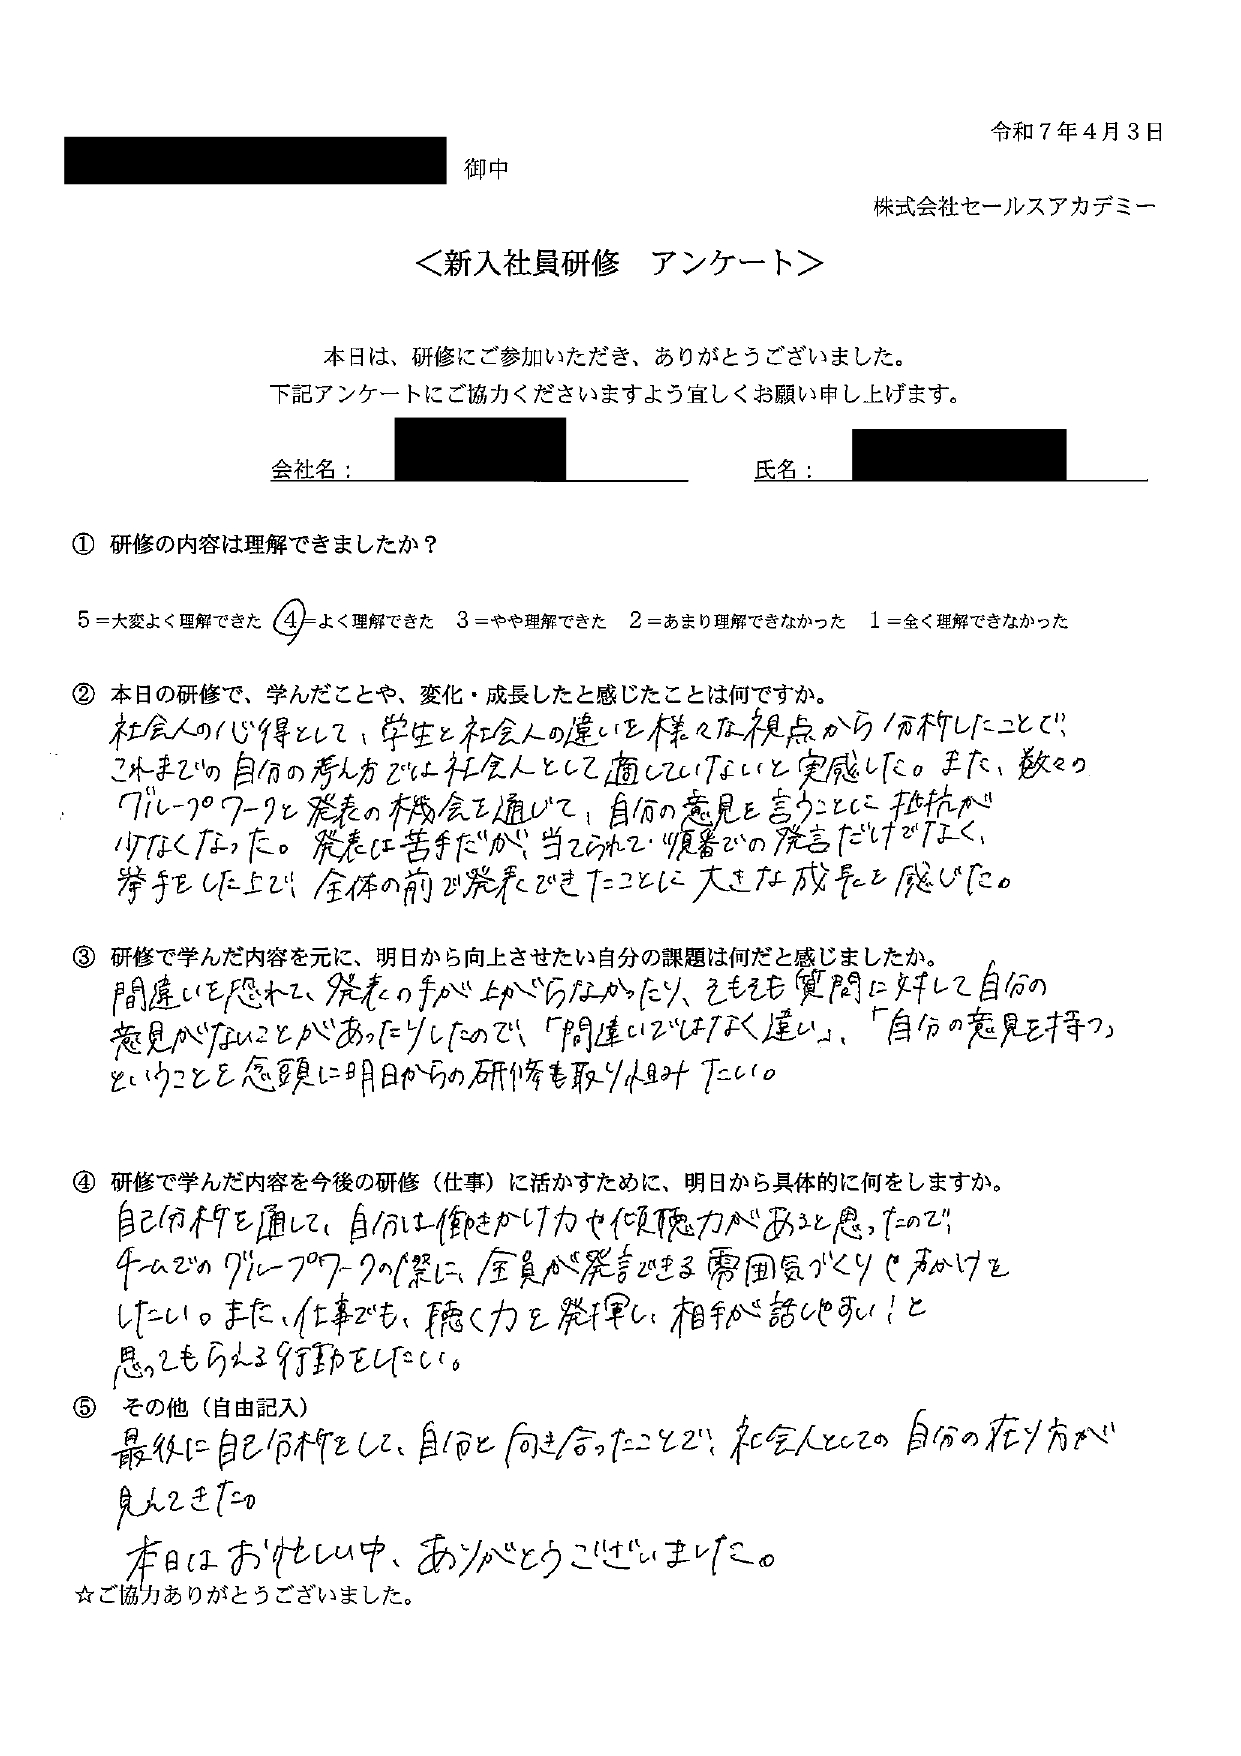 令和７年４月３日
御中
株式会社セールスアカデミー
＜新入社員研修　アンケート＞
本日は、研修にご参加いただき、ありがとうございました。
下記アンケートにご協力くださいますよう宜しくお願い申し上げます。
会社名：　氏名：
① 研修の内容は理解できましたか？
５＝大変よく理解できた　４＝よく理解できた　３＝やや理解できた　２＝あまり理解できなかった　１＝全く理解できなかった
② 本日の研修で、学んだことや、変化・成長したと感じたことは何ですか。
社会人の心得として、学生と社会人の違いを様々な視点から分析したことで、
これまでの自分の考え方では社会人として適していないと実感した。また、数々の
グループワークと発表の機会を通じて、自分の意見を言うことに抵抗が
少なくなった。発表は苦手だが、当てられて・順番での発言だけでなく、
挙手をした上で、全体の前で発表できたことに大きな成長を感じた。
③ 研修で学んだ内容を元に、明日から向上させたい自分の課題は何だと感じましたか。
間違いを恐れて、発表の手が上がらなかったり、そもそも質問に対して自分の
意見がないことがあったりしたので、「間違いではなく違い」、「自分の意見を持つ」
ということを念頭に明日からの研修も取り組みたい。
④ 研修で学んだ内容を今後の研修（仕事）に活かすために、明日から具体的に何をしますか。
自己分析を通して、自分は働きかけ力や傾聴力があると思ったので、
チームでのグループワークの際に、全員が発言できる雰囲気づくりや声かけを
したい。また、仕事でも、聴く力を発揮し、相手が話しやすい！と
思ってもらえる行動をしたい。
⑤　その他（自由記入）
最後に自己分析をして、自分と向き合ったことで、社会人としての自分の在り方が
見えてきた。
本日はお忙しい中、ありがとうございました。
☆ご協力ありがとうございました。